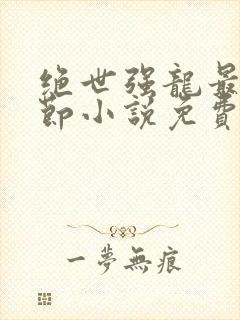 绝世强龍最
節小說免費
一夢無痕